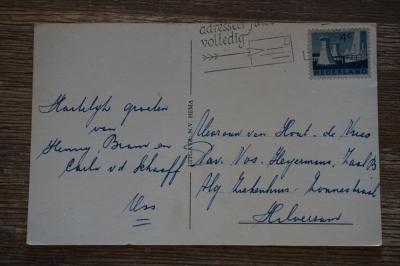 adresseer juist
volledig
4c
NEDERLAND
Hartelijke groeten
van
Henny, Bram en
Carla v.d. Schaaff
Oss
UITGAVE: N.V. HEMA
Mevrouw van Hout - de Vries
Pav. Vos. Heyermans, Zaal B
Alg Ziekenhuis - Zonnestraal
Hilversum